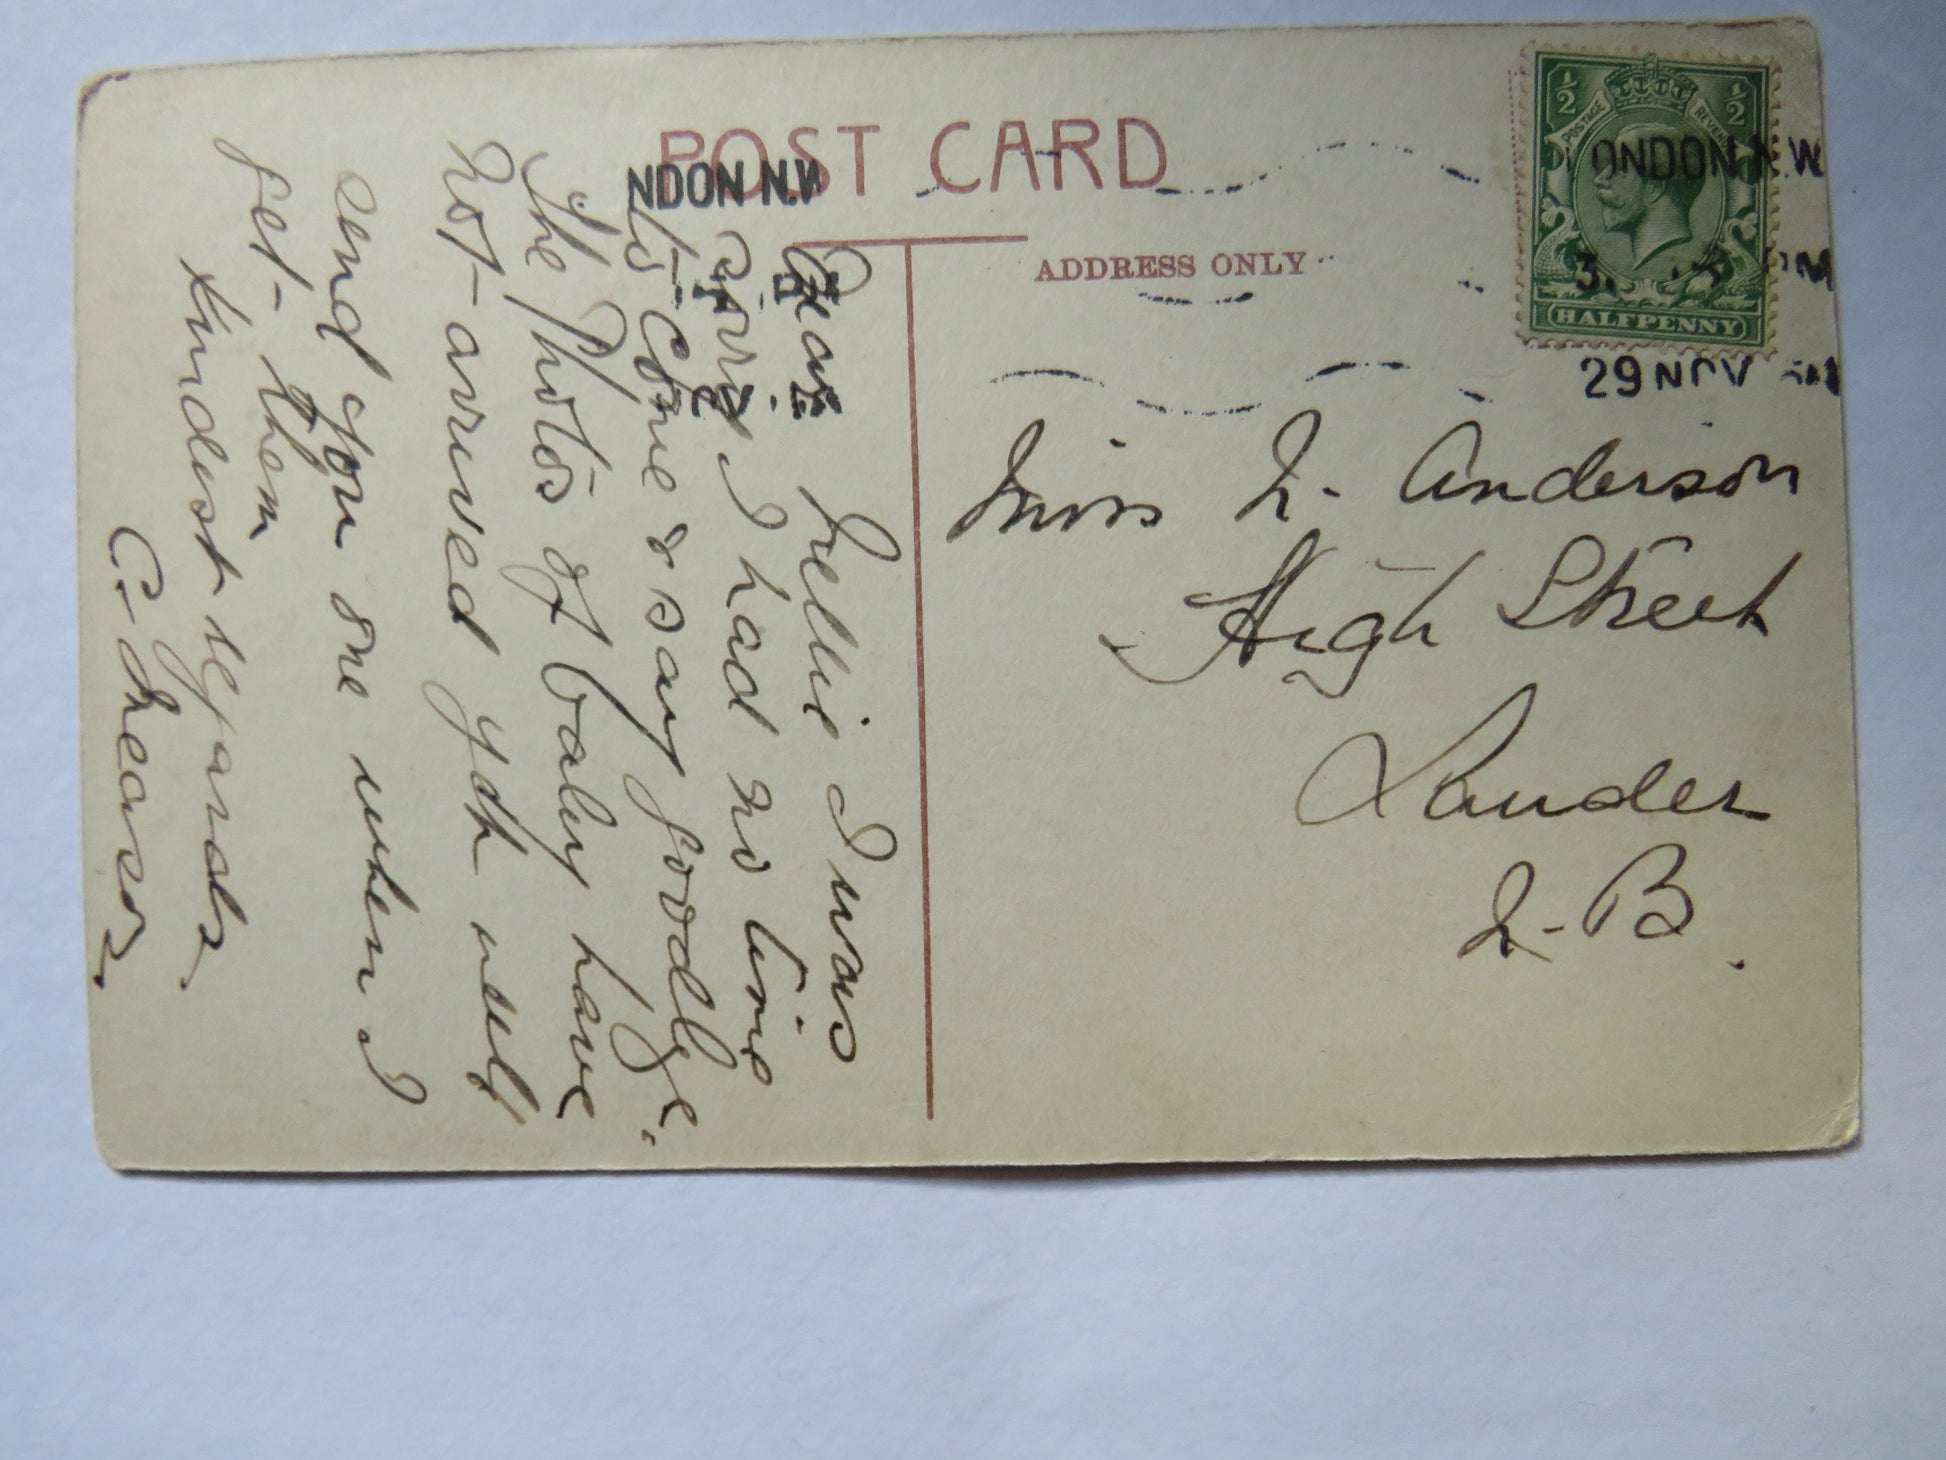 POST CARD
ADDRESS ONLY
½ ½
POSTAGE REVENUE
HALFPENNY
LONDON N.W
29 NOV
NDON N.W
Miss N. Anderson
High Street
Lauder
N. B.
Dear Nellie I was
sorry I had no time
to come & say goodbye.
The Photos of baby have
not arrived yet will
send you one when I
get them
Kindest regards
C.